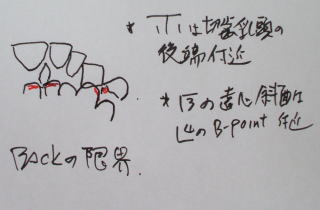 * は切歯乳頭の
後端付近
* 3の遠心斜面は
L4のB-point 付近
Backの限界.